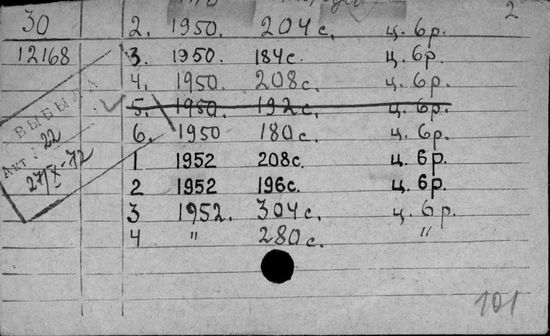 2
30 2. 1950. 204 с. ц. 6 р.
12168 3. 1950. 184 с. ц. 6 р.
4. 1950. 208 с. ц. 6 р.
5. 1950. 192 с. ц. 6 р.
6. 1950 180 с. ц. 6 р.
1 1952 208 с. ц. 6 р.
2 1952 196 с. ц. 6 р.
3 1952. 304 с. ц. 6 р.
4 " 280 с. "
ВЫБЫЛА
Акт 22
27/IX-72
101